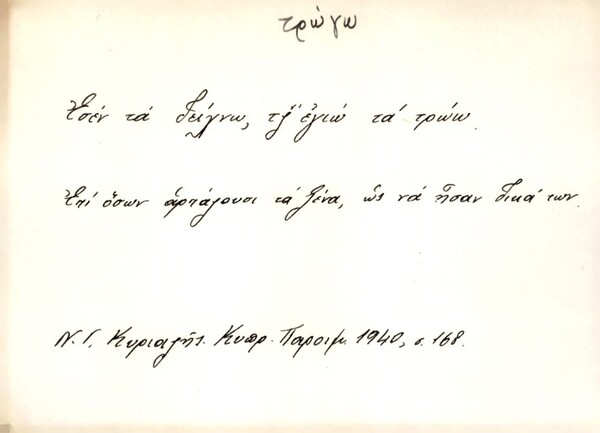 τρώγω
Ἐσέν τά δείχνω, τζ̌' ἐγιώ τά τρώω.
Ἐπί ὅσων ἁρπάζουσι τά ξένα, ὡς νά ἦσαν δικά των.
Ν. Γ. Κυριαζῆς. Κυπρ. Παροιμ. 1940, σ. 168.